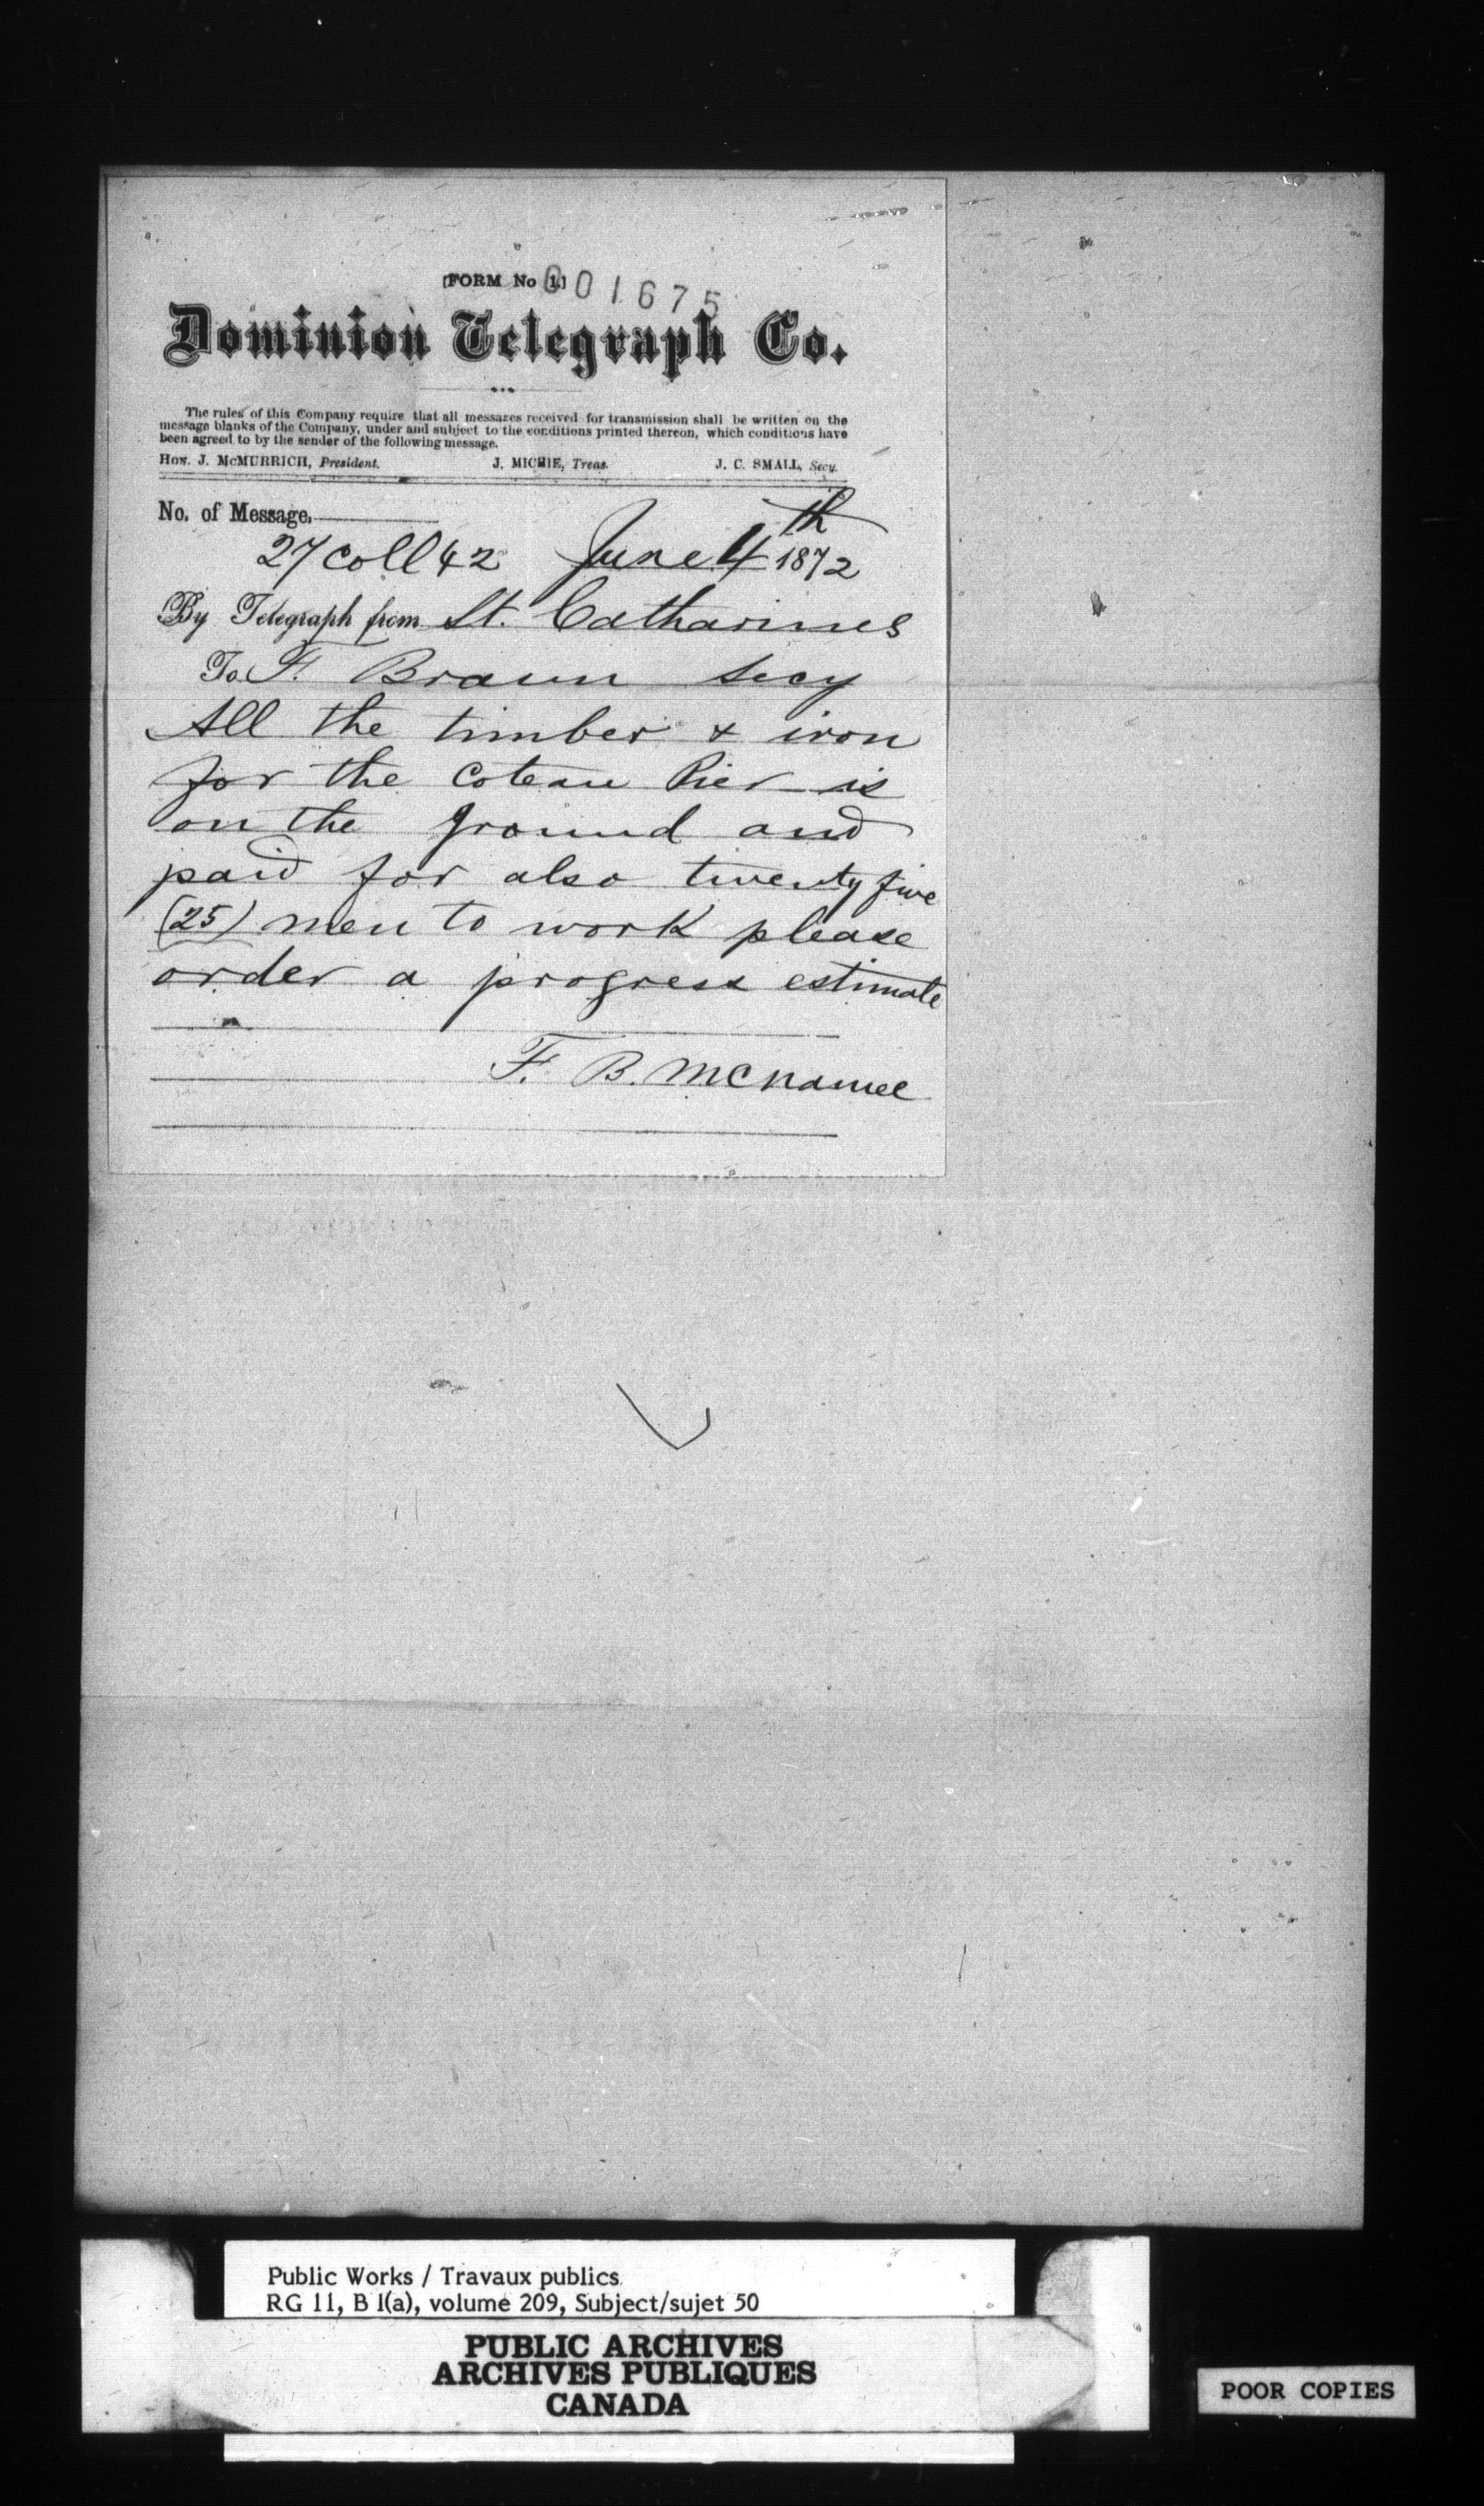 [FORM No 1.]
001675
Dominion Telegraph Co.
The rules of this Company require that all messages received for transmission shall be written on the
message blanks of the Company, under and subject to the conditions printed thereon, which conditions have
been agreed to by the sender of the following message.
Hon. J. McMURRICH, President. J. MICHIE, Treas. J. C. SMALL, Secy.
No. of Message,
27 Coll 42 June 4th 1872
By Telegraph from St. Catharines
To F. Braun Secy
All the timber & iron
for the Coteau Pier is
on the ground and
paid for also twenty five
(25) men to work please
order a progress estimate
F. B. McNamee
Public Works / Travaux publics
RG 11, B 1(a), volume 209, Subject/sujet 50
PUBLIC ARCHIVES
ARCHIVES PUBLIQUES
CANADA
POOR COPIES